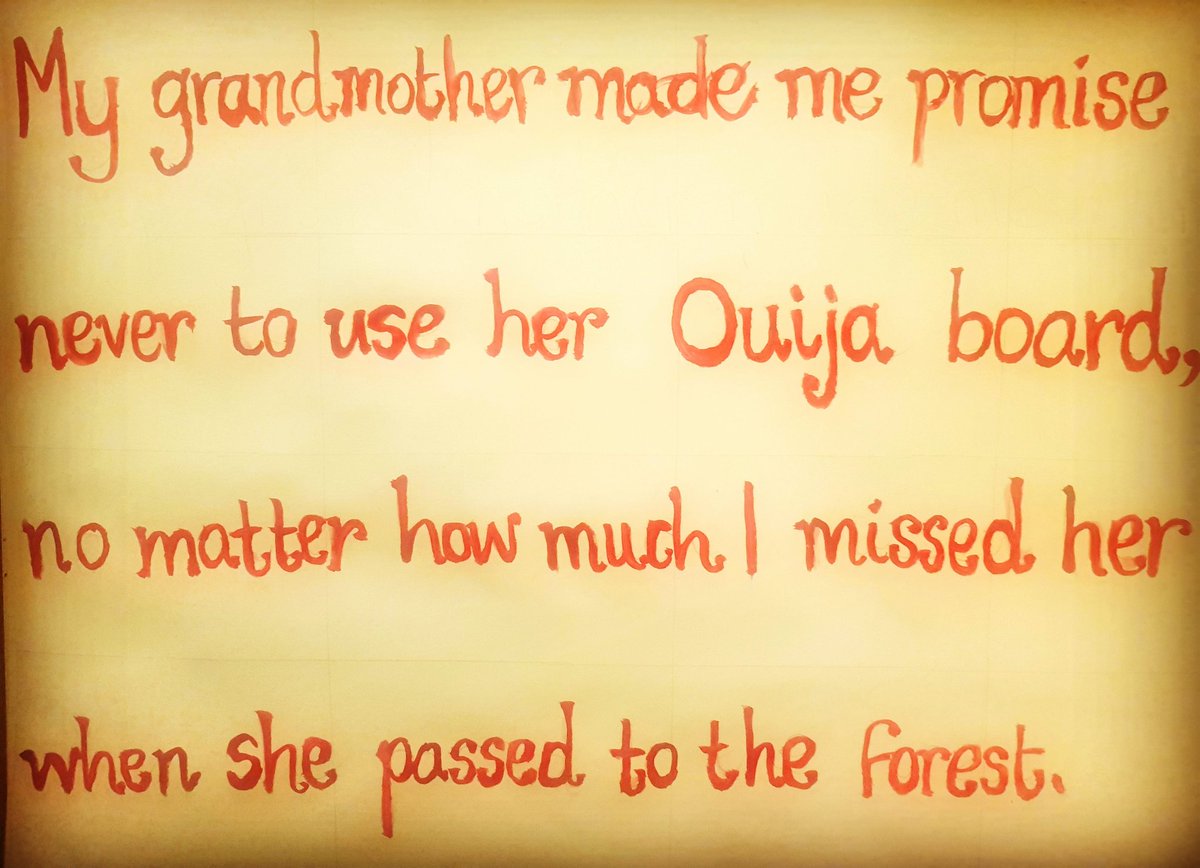 My grandmother made me promise
never to use her Ouija board,
no matter how much I missed her
when she passed to the forest.